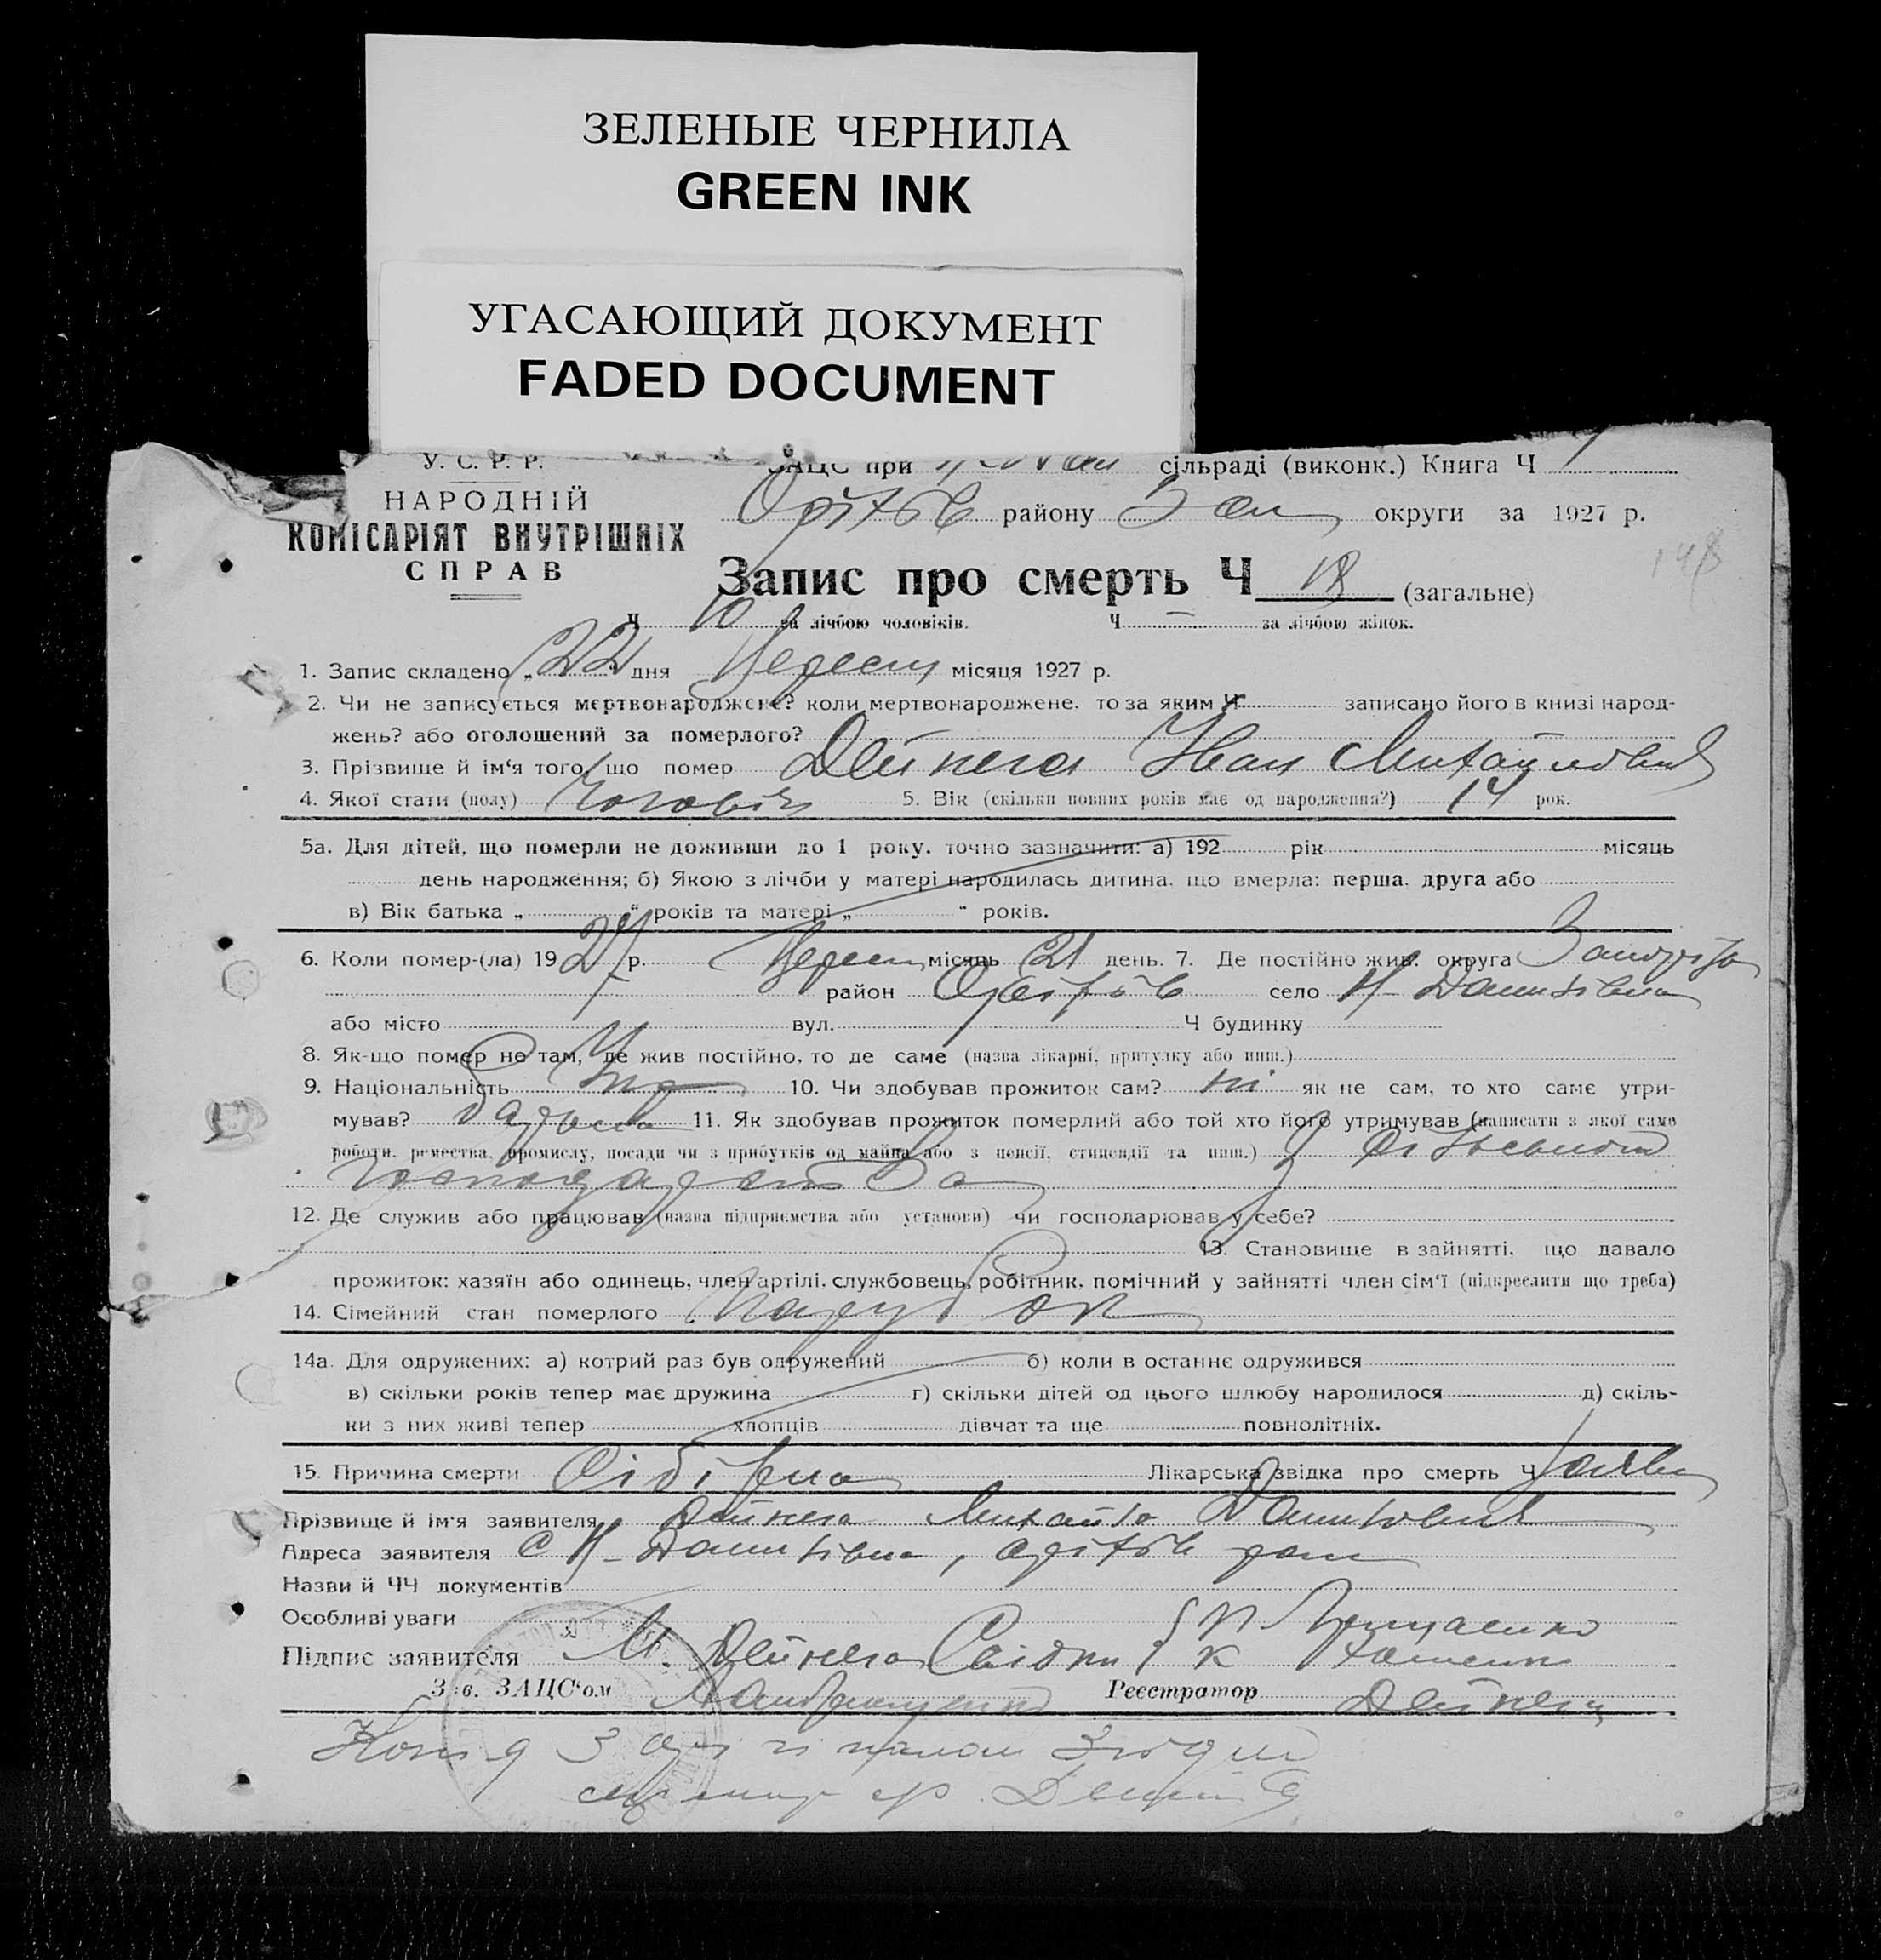 ЗЕЛЕНЫЕ ЧЕРНИЛА
GREEN INK
УГАСАЮЩИЙ ДОКУМЕНТ
FADED DOCUMENT
У. С. Р. Р.
ЗАЦС при сільраді (виконк.) Книга Ч 1
НАРОДНІЙ
КОМІСАРІЯТ ВНУТРІШНІХ
СПРАВ
Оріхів району Зап округи за 1927 р.
148
Запис про смерть Ч 18 (загальне)
Ч 10 за лічбою чоловіків. Ч — за лічбою жінок.
1. Запис складено „ 22 " дня Вересн місяця 1927 р.
2. Чи не записується мертвонароджене? коли мертвонароджене, то за яким Ч записано його в книзі народ-
жень? або оголошений за померлого?
3. Прізвище й ім‘я того, що помер Дейнега Іван Михайлович
4. Якої стати (полу) Чоловіч 5. Вік (скільки повних років має од народження?) 14 рок.
5а. Для дітей, що померли не доживши до 1 року, точно зазначити: а) 192 рік місяць
день народження; б) Якою з лічби у матері народилась дитина, що вмерла: перша, друга або
в) Вік батька „ “ років та матері „ “ років.
6. Коли помер-(ла) 1927 р. Вересн місяць 21 день. 7. Де постійно жив: округа Запоріж
район Оріхів село Н-Данилівна
або місто вул. Ч будинку
8. Як-що помер не там, де жив постійно, то де саме (назва лікарні, притулку або инш.)
9. Національність Укр 10. Чи здобував прожиток сам? ні як не сам, то хто саме утри-
мував? батько 11. Як здобував прожиток померлий або той хто його утримував (написати з якої саме
роботи, ремества, промислу, посади чи з прибутків од майна або з пенсії, стипендії та инш.) З сільського
господарства
12. Де служив або працював (назва підприємства або установи) чи господарював у себе?
13. Становище в зайнятті, що давало
прожиток: хазяїн або одинець, член артілі, службовець, робітник, помічний у зайнятті член сім‘ї (підкреслити що треба)
14. Сімейний стан померлого Парубок
14а. Для одружених: а) котрий раз був одружений б) коли в останнє одружився
в) скільки років тепер має дружина г) скільки дітей од цього шлюбу народилося д) скіль-
ки з них живі тепер хлопців дівчат та ще повнолітніх.
15. Причина смерти Лікарська звідка про смерть Ч заява
Прізвище й ім‘я заявителя Дейнега Михайло Данилович
Адреса заявителя С Н-Данилівна, Оріхів рай
Назви й ЧЧ документів
Особливі уваги
Підпис заявителя М. Дейнега Свідки
Зав. ЗАЦС‘ом Реєстратор Дейнега
Копія з оригіналом згідна